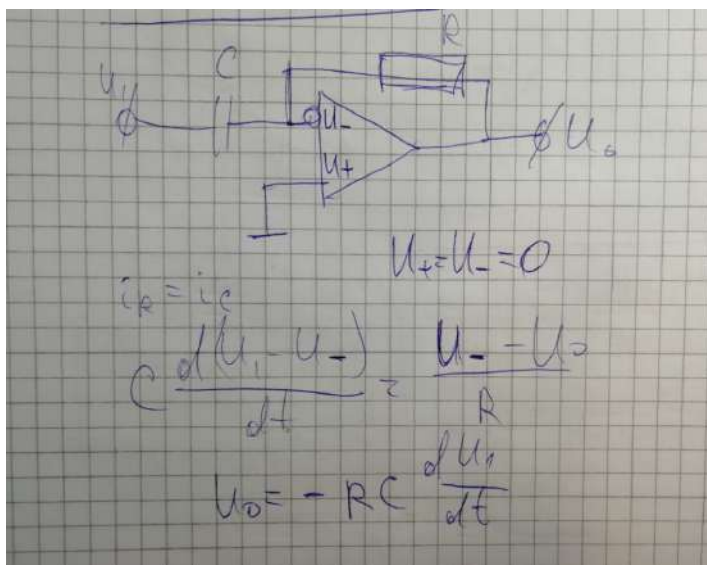 R
U₁ C
U₋
U₊ U₀
U₊ = U₋ = 0
i_R = i_C
C d(U₁ - U₋)/dt = (U₋ - U₀)/R
U₀ = - RC dU₁/dt